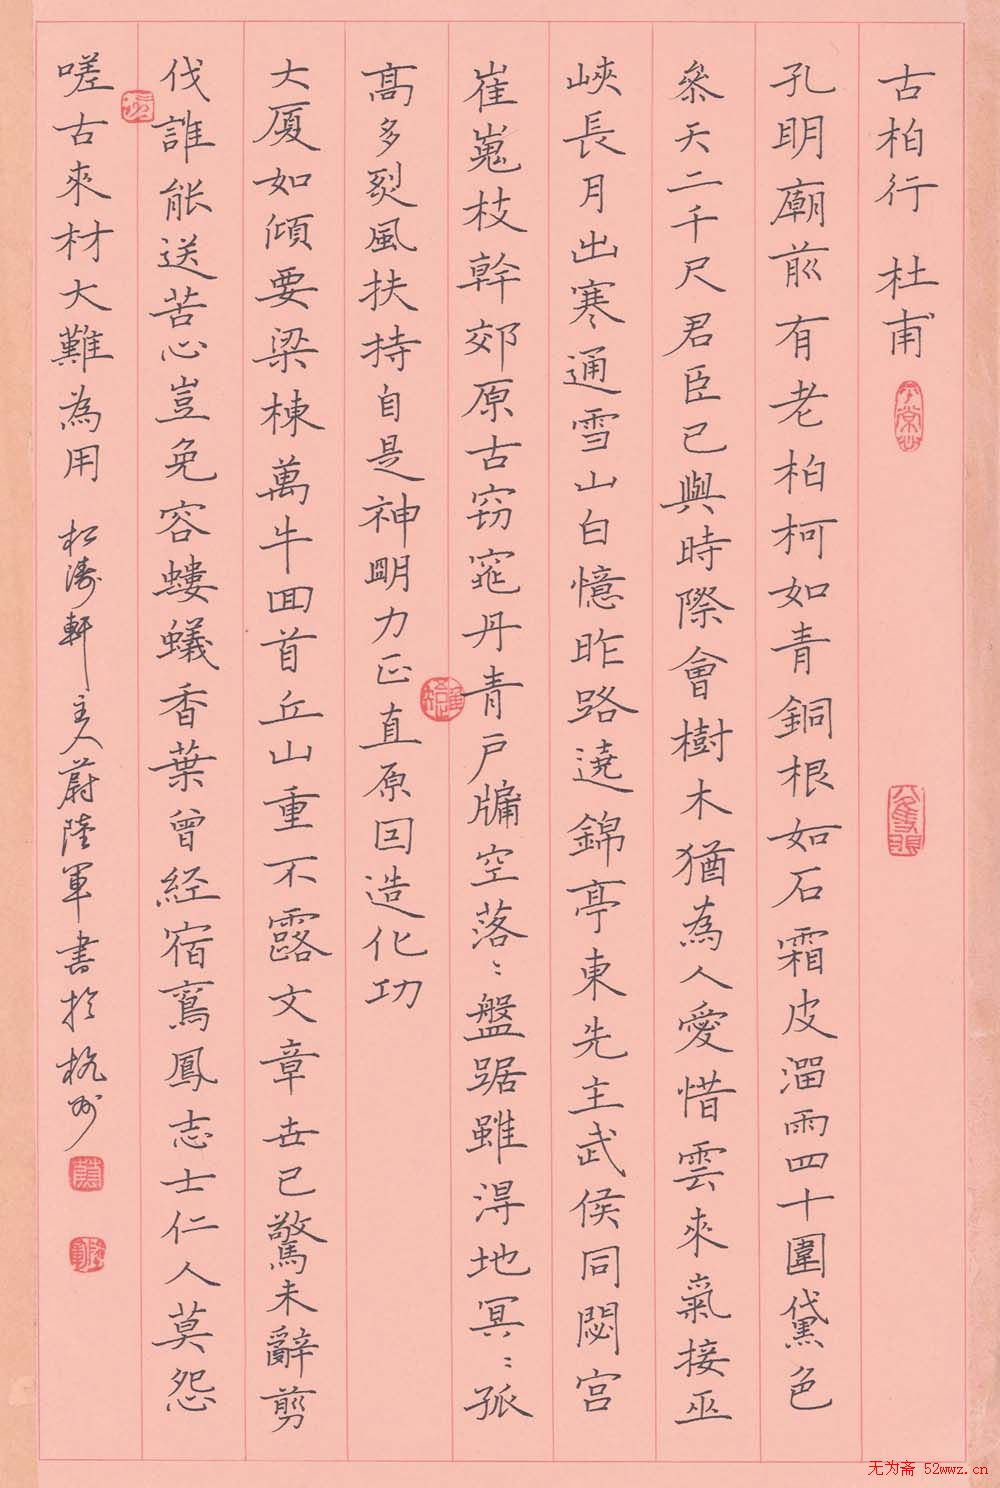 古柏行 杜甫
孔明廟前有老柏柯如青銅根如石霜皮溜雨四十圍黛色
參天二千尺君臣已與時際會樹木猶為人愛惜雲來氣接巫
峽長月出寒通雪山白憶昨路遶錦亭東先主武侯同閟宮
崔嵬枝幹郊原古窈窕丹青戶牖空落〻盤踞雖得地冥〻孤
高多烈風扶持自是神明力正直原因造化功
大厦如傾要梁棟萬牛回首丘山重不露文章世已驚未辭剪
伐誰能送苦心豈免容螻蟻香葉曾經宿鸞鳳志士仁人莫怨
嗟古來材大難為用 松濤軒主人蔚陸軍書於杭州
无为斋 52wwz.cn